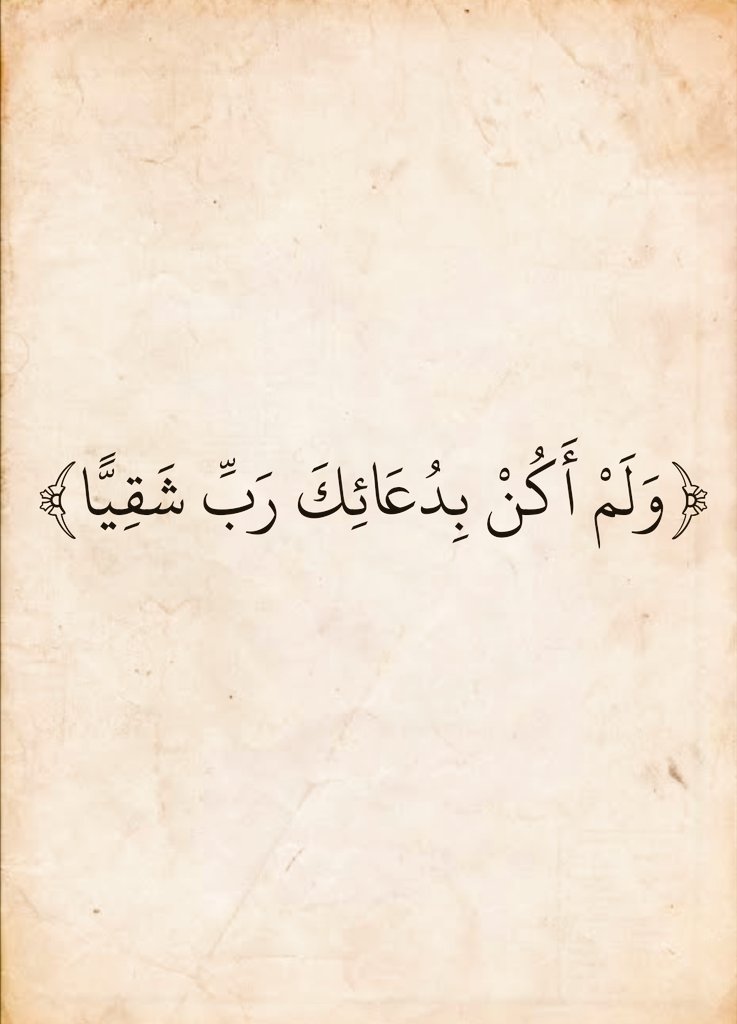 ﴿وَلَمْ أَكُنْ بِدُعَائِكَ رَبِّ شَقِيًّا﴾